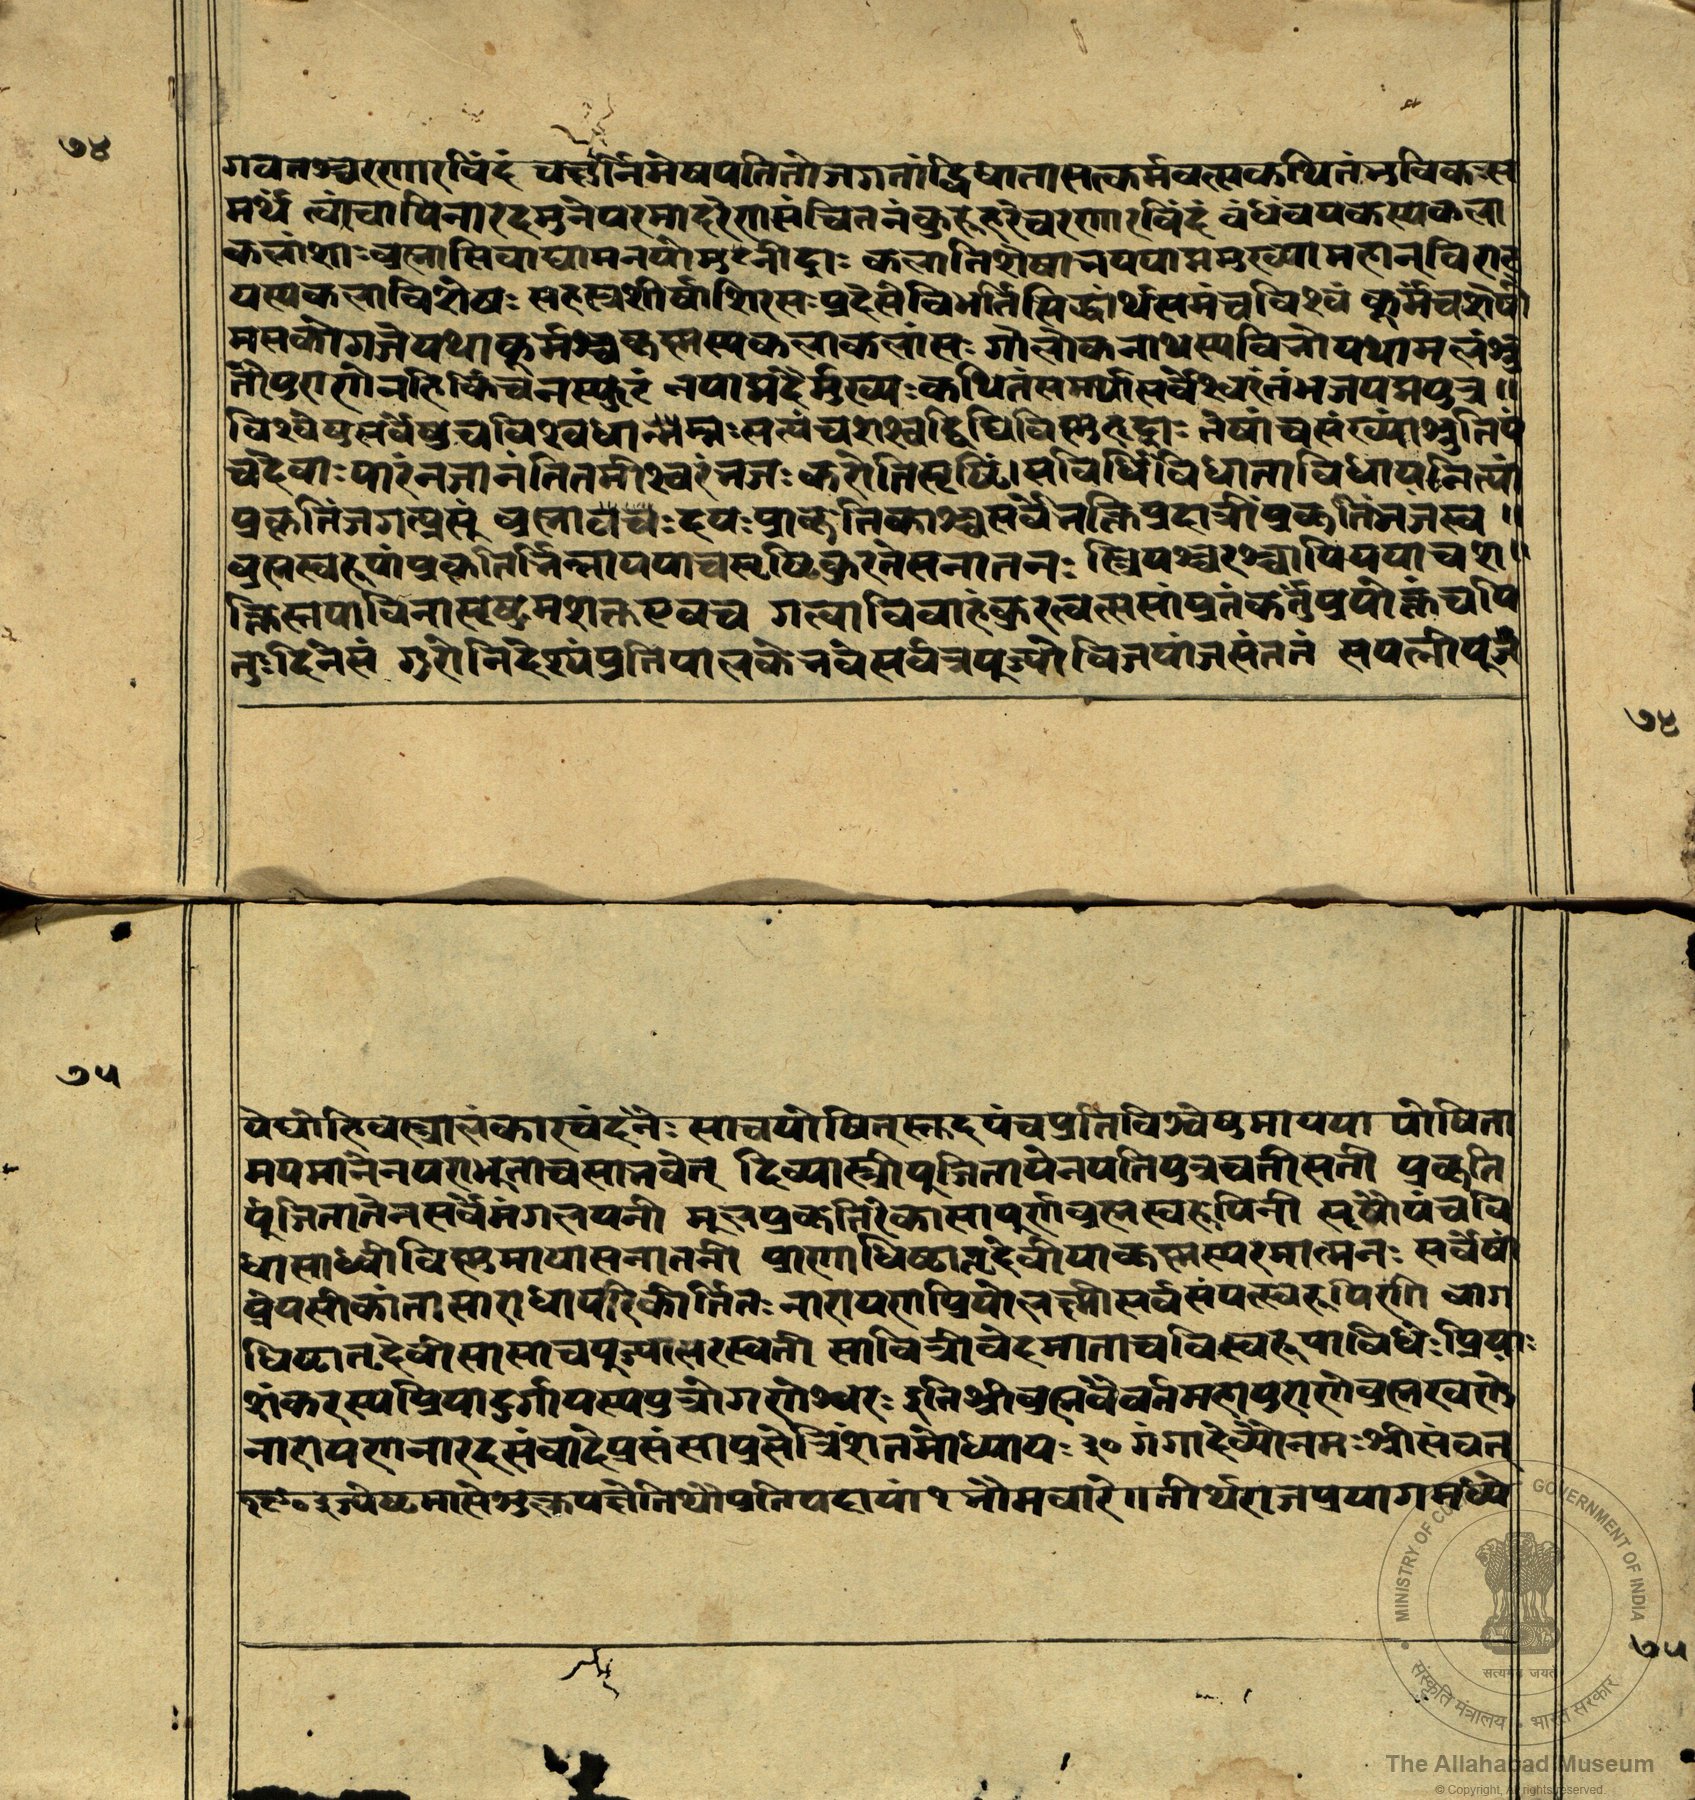 ७४
गवतश्चरणारविंदं चक्षुर्निमेषपतितोजगतांद्विधातासत्कर्मवत्सकथितंभुविकःस
मर्थं त्वांचापिनारदमुनेपरमादरेणसंचितनंकुरूहरेचरणारविंदं वंधंवयकस्यकला
कलांशाःव्रह्मासिवाद्या कलातिशेषा महान्विराट्
यस्यकलाविशेषः सहस्रशीर्षाशिरसःप्रदेसेविभर्तिसिद्धार्थसमंचविश्वं कूर्मेचशेषो
मसकोगजेयथाकूर्मश्चकृष्णस्यकलाकलांसः गोलोकनाथस्यविभोयथामलंश्रु
तौपुराणेनहिकिंचनस्फुटं कथितंसमर्थासर्वेश्वरंतंभजपद्मपुत्र॥
विश्वेषुसर्वेषुच सत्यंचशेश्वद्विधिविस्मुरुद्राः तेषांचसंख्यांश्रुतिपं
चदेवाः पारंनजानंतितमीश्वरंभजः करोतिसृष्टिं।सविधिंविधाताविधायनित्यां
प्रकृतिंजगत्प्रसूं प्राकृतिकाश्चसर्वेभक्तिप्रदात्रींप्रकृतिंभजंस्व॥
व्रह्मस्वरूपांप्रकृतिर्भिन्नाययाचसृष्टिकुरुतेसनातनः स्त्रियश्च
क्तिस्तयाविनासृष्टुमशक्तएवच गत्वाविवाहंकुरुत्वत्ससांप्रतंकर्तुं
तुःदिनेसं गुरोनिदेश्यंप्रतिपालकेभवेसर्वत्रपूज्योविजयांजसंततं सपत्नीपूज
७४
७५
येद्योहिवस्त्रालंकारचंदनैः साचयोषित्स्तदयंचप्रतिविश्वेषुमायया योषिता
मपमानेनपराभूताचसाभवेत् दिव्यास्त्रीपूजितायेनपतिपुत्रवतीसती प्रकृति
पूंजितातेनसर्वमंगलयनी मूलप्रकृतिरेकासापूर्णव्रह्मस्वरूपिनी सृष्टौपंचवि
धासाध्वीविस्मुमायासनातनी प्राणाधिष्ठातृदेवीयाकृष्णस्यरमात्मनः सर्वेषां
प्रेयसीकांतासाराधापरिकीर्तितः नारायणप्रियोलक्ष्मीसर्वसंपत्स्वरूपिणी वाग
धिष्ठातृदेवीसासाचपूज्यासरस्वती सावित्रीवेदमाताचविस्वरूपाविधेःप्रियाः
शंकरस्यप्रियादुर्गायस्यपुत्रोगणेश्वरः इतिश्रीव्रह्मवैवर्तमहापुराणेव्रह्मखणे
नारायणनारदसंवादेप्रसंसाप्रसेत्रिंशतमोध्यायः ३० गंगादेव्यैनमःश्रीसंवत्
ज्येष्टमासेशुक्लपक्षेतिथौप्रतिपदायां१भौमवारे॥तीर्थराजप्रयागमध्ये
७५
MINISTRY OF CULTURE GOVERNMENT OF INDIA
सत्यमेव जयते
संस्कृति मंत्रालय • भारत सरकार
The Allahabad Museum
© Copyright, All rights reserved.